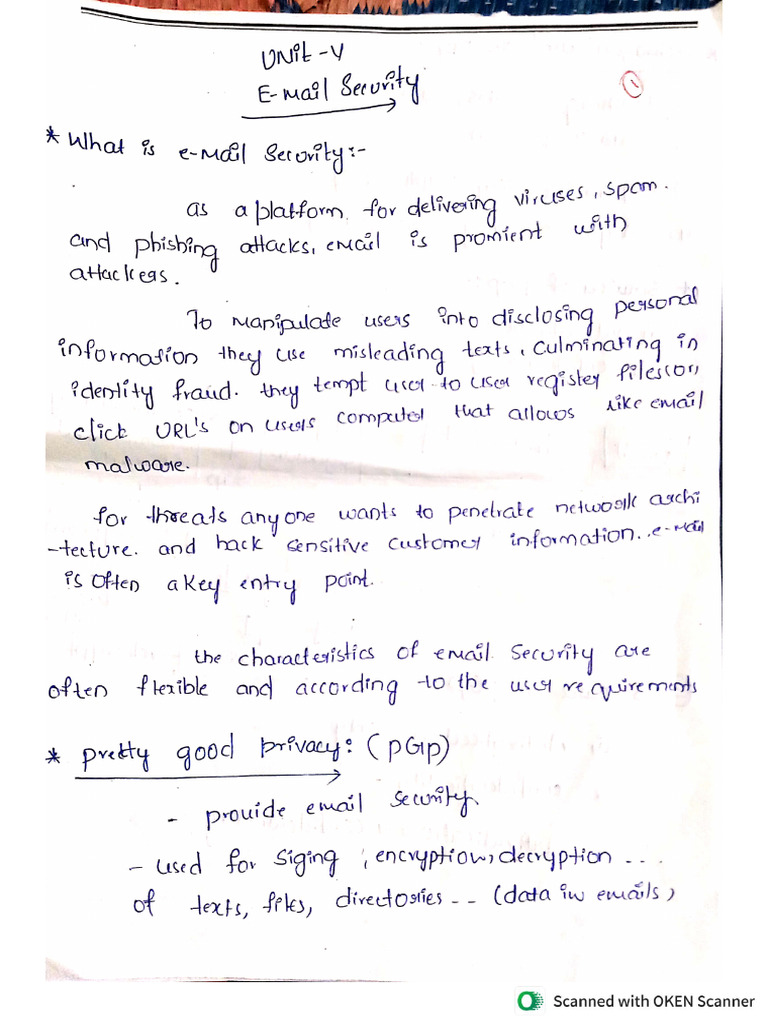 UNit-V
E-mail Security
1
* What is e-mail Security:-
as a platform for delivering viruses, spam.
and phishing attacks, email is promient with
attackers.
To manipulate users into disclosing personal
information they use misleading texts, culminating in
identity fraud. they tempt user to user register files (or)
click URL's on users computer that allows like email
malware.
for threats anyone wants to penetrate network archi
-tecture. and hack sensitive customer information. e-mail
is often a key entry point.
the characteristics of email security are
often flexible and according to the user requirements
* pretty good privacy: (PGP)
- provide email security.
- used for siging, encryption, decryption ....
of texts, files, directories -- (data in emails)
Scanned with OKEN Scanner